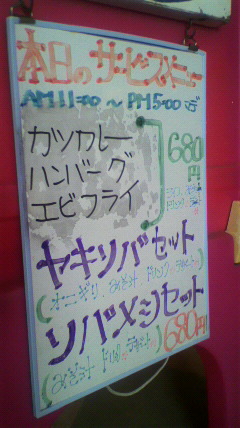 本日のサービスメニュー
AM11:00～PM5:00迄
カツカレー
ハンバーグ
エビフライ
680円
ヤキソバセット
(オニギリ、みそ汁 ドリンク、デザート)
ソバメシセット
680円
(みそ汁 ドリンク デザート)